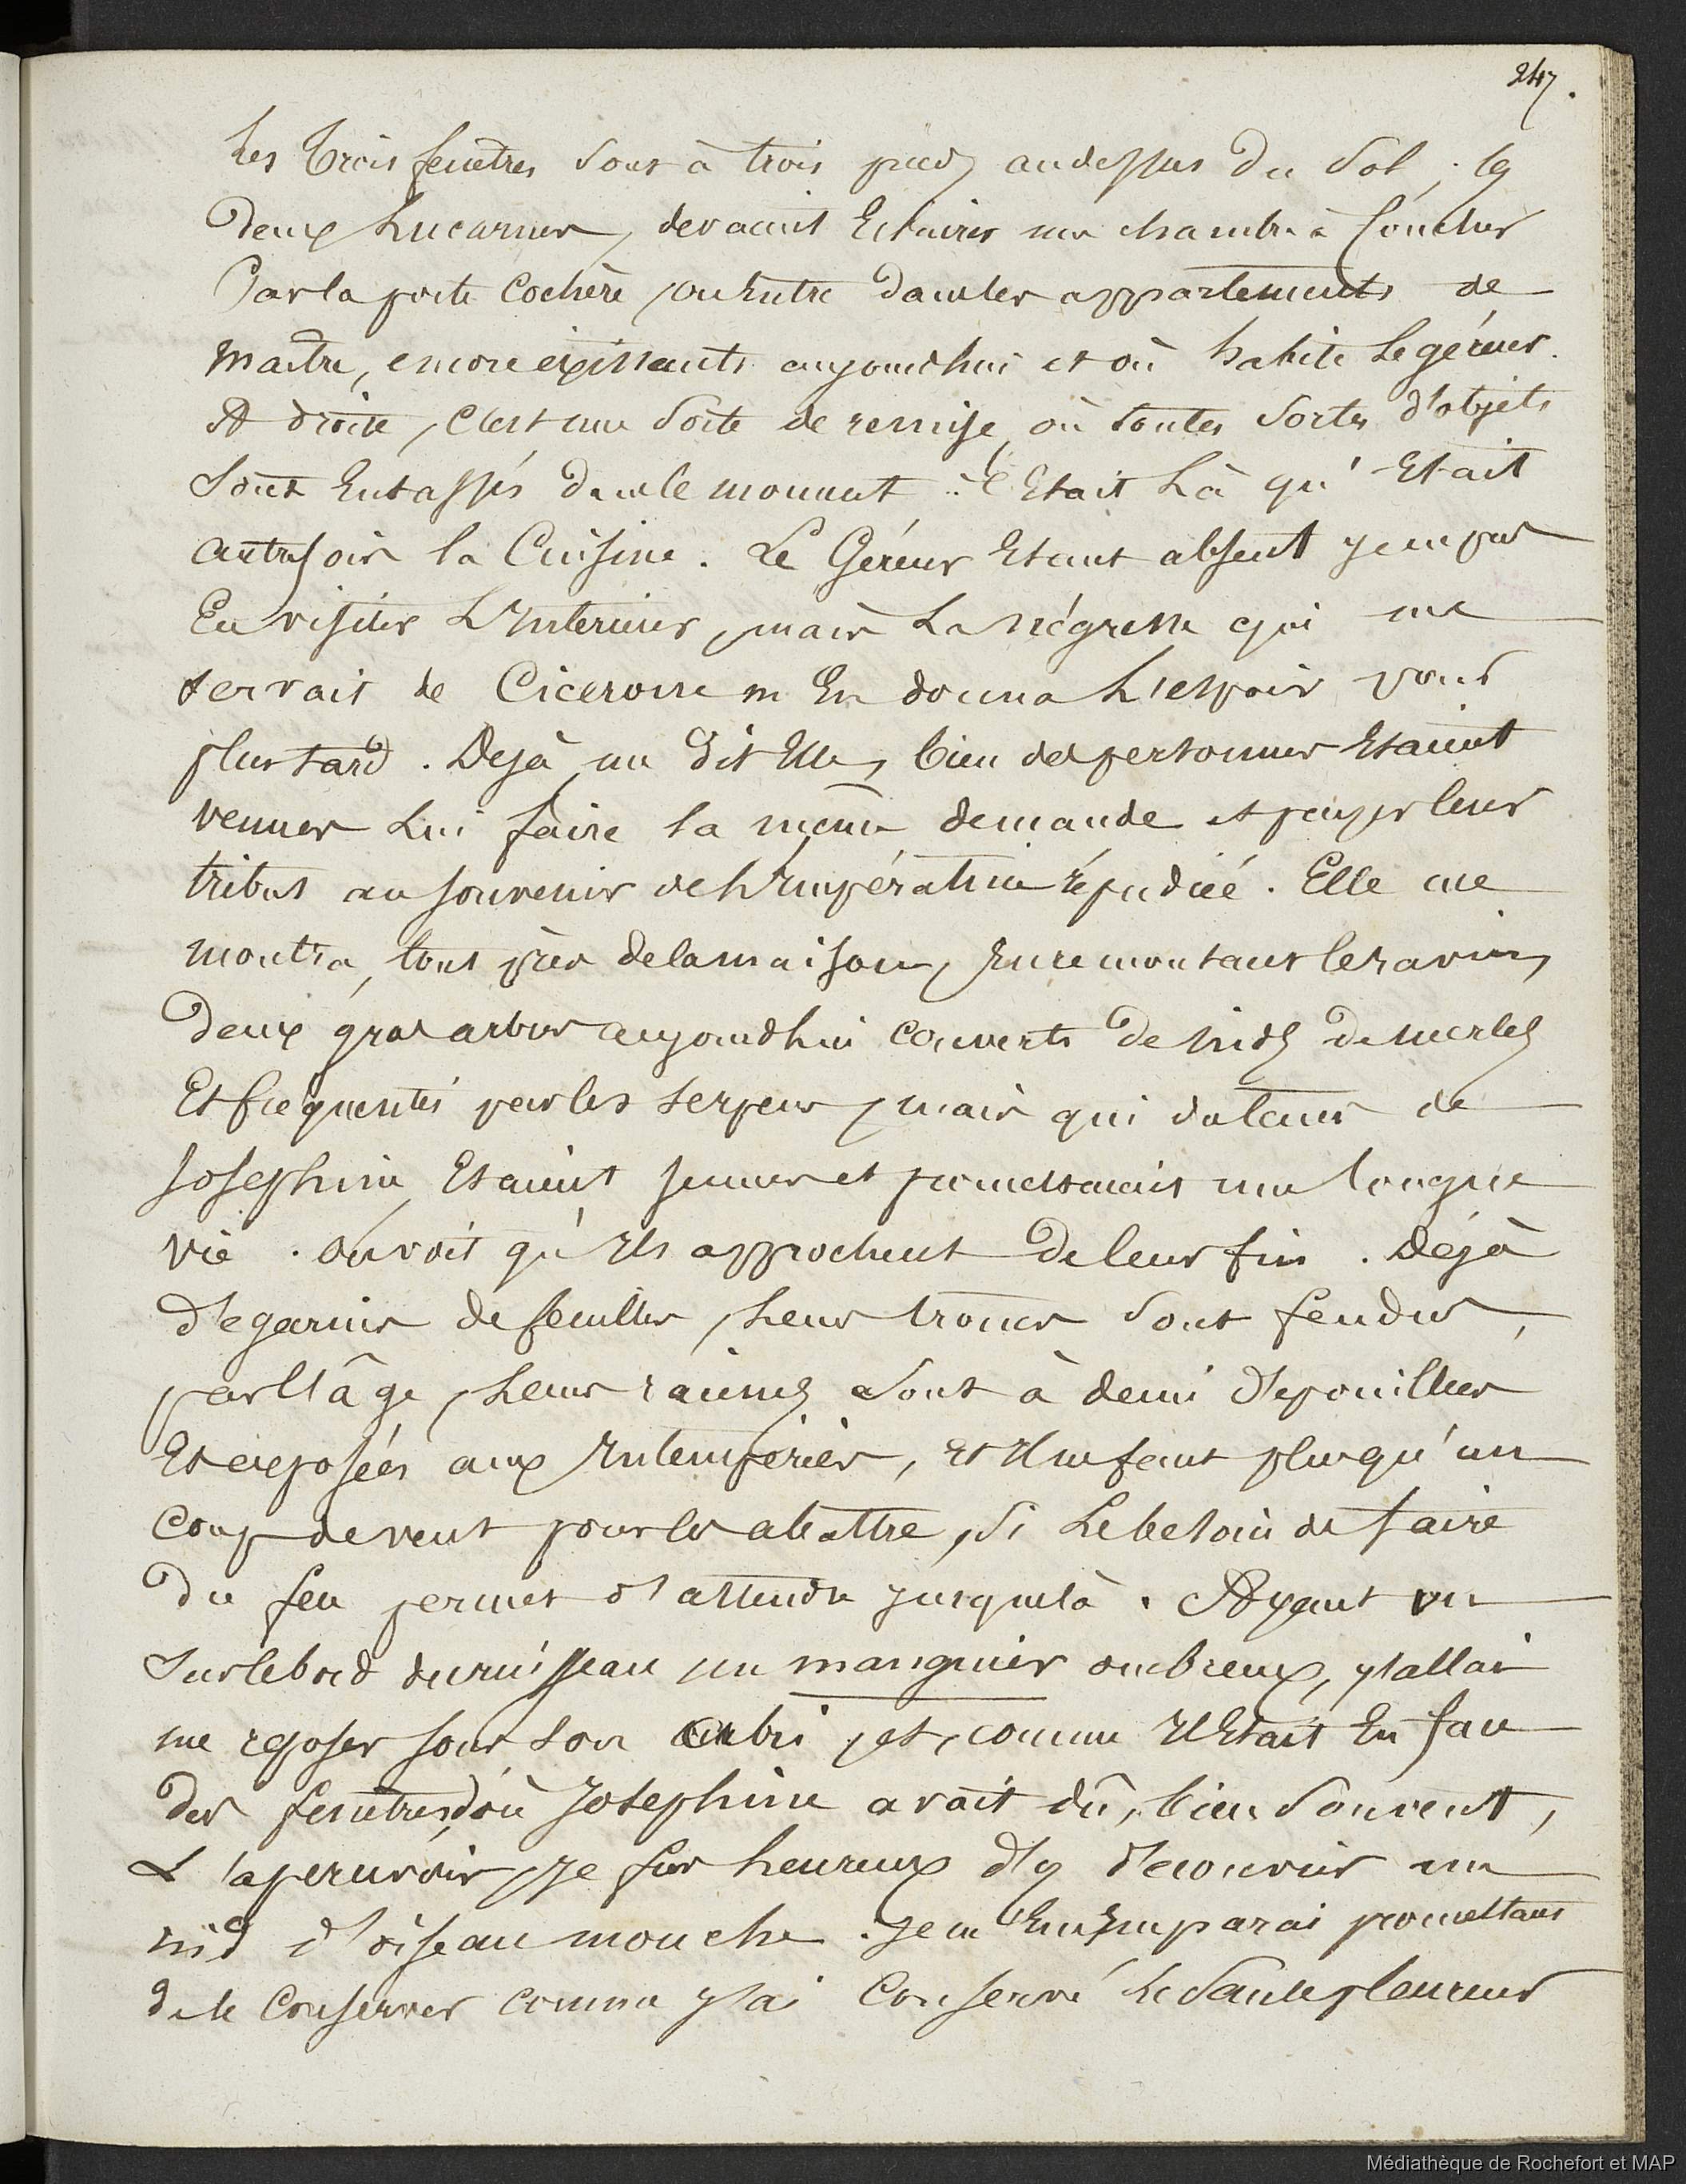 247.
Les trois fenêtres sont à trois pieds audessus du sol ; les
deux Lucarnes, devaient Eclairer une chambre à Coucher
Par la porte Cochère, on Entre dans les appartements de
maître, encore existants aujourdhui et où habite Le géreur.
A droite, c'est une sorte de remise, où toutes sortes d'objets
sont Entassés dans le moment : C'Etait Là qu'Etait
autrefois la Cuisine. Le Géreur Etant absent je ne pus
En visiter L'Interieur, mais La négresse qui me
servait de Cicerone m'En donna L'espoir pour
plus tard. Dejà, me dit Elle, bien des personnes Etaient
venues Lui faire la même demande et payer leur
tribut au souvenir de L'Impératrice répudiée. Elle me
montra, tout près de la maison, En remontant le ravin,
deux gros arbres aujourdhui couverts de Nids de merles
Et fréquentés par les serpens, mais qui du tems de
Josephine Etaient jeunes et promettaient une longue
vie. On voit qu'Ils approchent de leur fin. Déjà
dégarnis de feuilles, Leurs troncs sont fendus,
par l'âge, Leurs racines sont à demi dépouillées
Et exposées aux Intempéries, Et Il ne faut plus qu'un
coup de vent pour les abattre, si Le besoin de faire
du feu permet d'attendre jusque là. Ayant vu
sur le bord du ruisseau un manguier ombreux, j'allai
me reposer sous son abri, et, comme Il Etait En face
des fenêtres, d'où Josephine avait dû, bien souvent,
L'apercevoir, je fus heureux d'y découvrir un
nid d'oiseau mouche. Je m'En Emparai promettant
de le Conserver comme j'ai Conservé Le Saule pleureur
Médiathèque de Rochefort et MAP